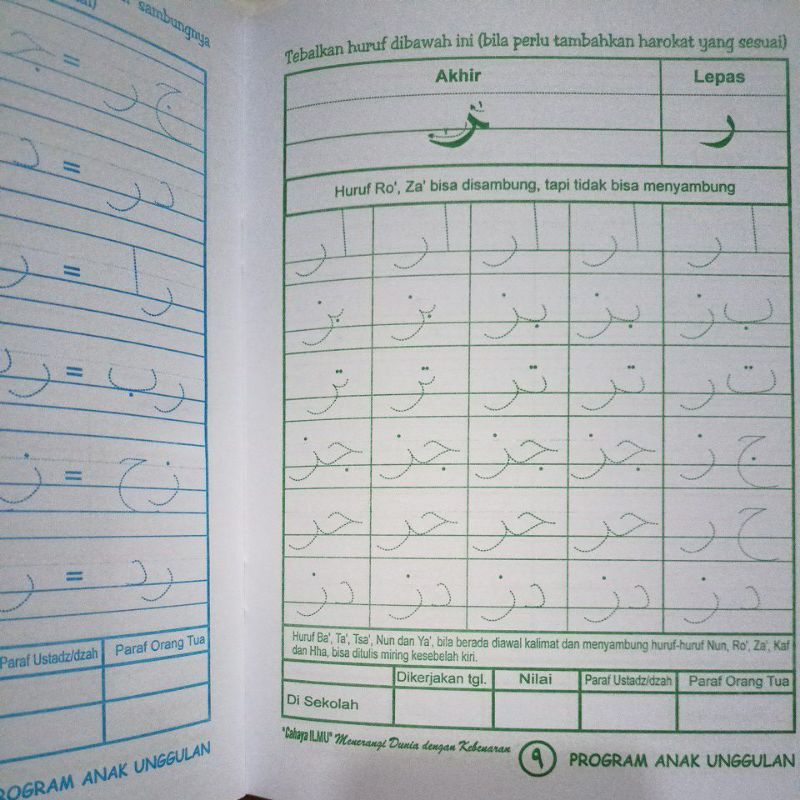 sambungnya
ج ر =
د ر =
ر ا =
ر ب =
ز ح =
ر د =
Paraf Ustadz/dzah Paraf Orang Tua
PROGRAM ANAK UNGGULAN
Tebalkan huruf dibawah ini (bila perlu tambahkan harokat yang sesuai)
Akhir Lepas
ر
Huruf Ro', Za' bisa disambung, tapi tidak bisa menyambung
ا ر ار ار ار ار
ب ز بز بز بز بز
ت ر تر تر تر تر
ج ز جز جز جز جز
ح ر حر حر حر حر
د ز دز دز دز دز
Huruf Ba', Ta', Tsa', Nun dan Ya', bila berada diawal kalimat dan menyambung huruf-huruf Nun, Ro', Za', Kaf
dan Hha, bisa ditulis miring kesebelah kiri.
Dikerjakan tgl. Nilai Paraf Ustadz/dzah Paraf Orang Tua
Di Sekolah
"Cahaya ILMU" Menerangi Dunia dengan Kebenaran ٩ PROGRAM ANAK UNGGULAN